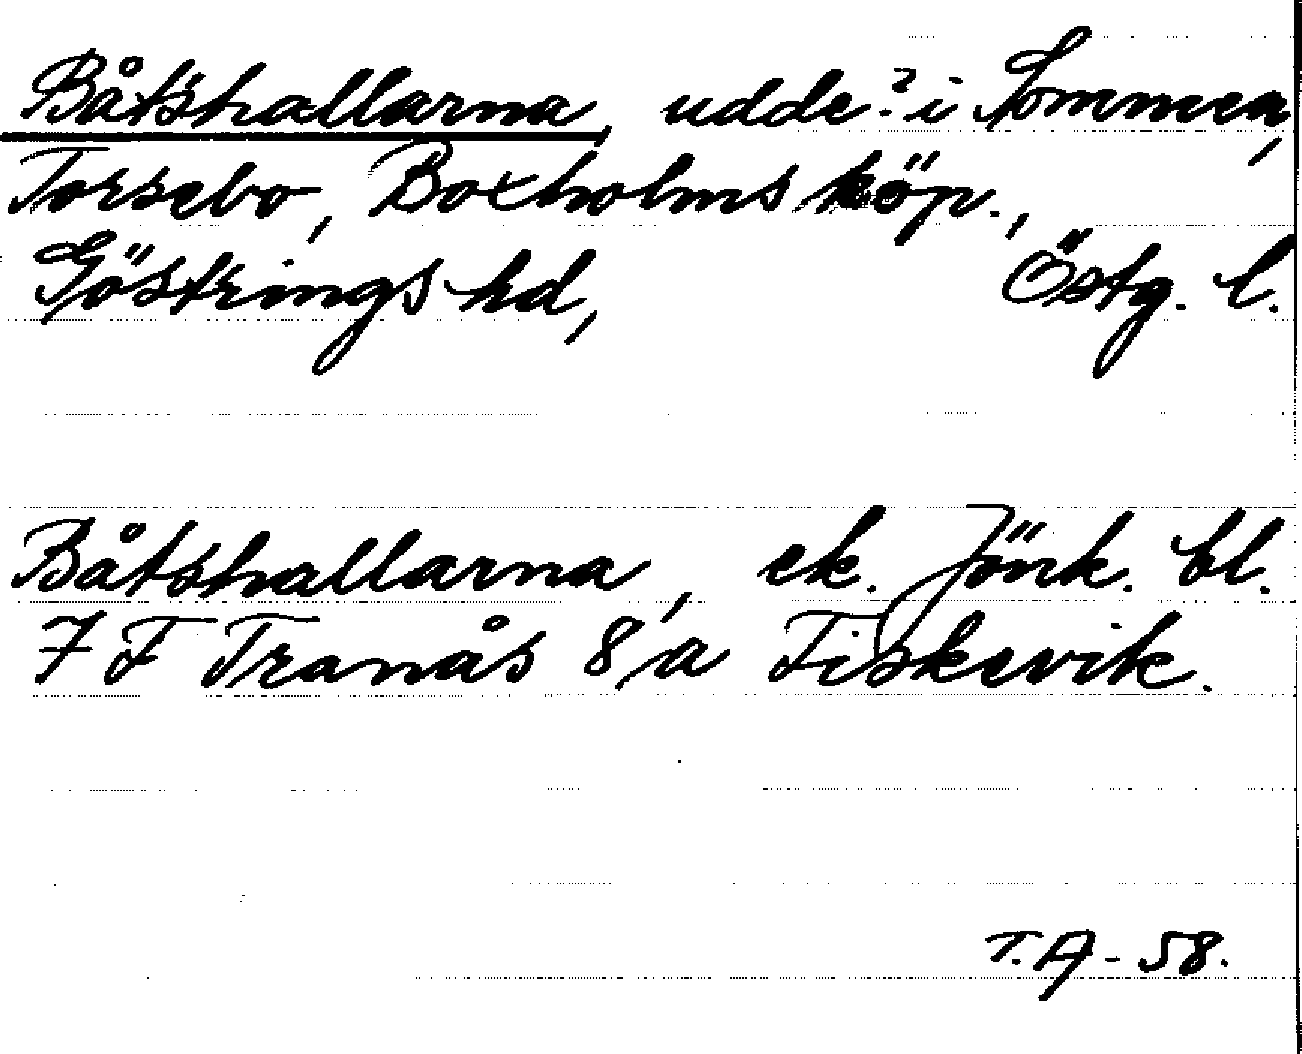 Båtshallarna, udde? i Sommen,
Torsebo, Boxholms köp.,
Göstrings hd, Östg. l.
Båtshallarna, ek. Jönk. bl.
7 F Tranås 8/a Fiskevik.
T.A-58.